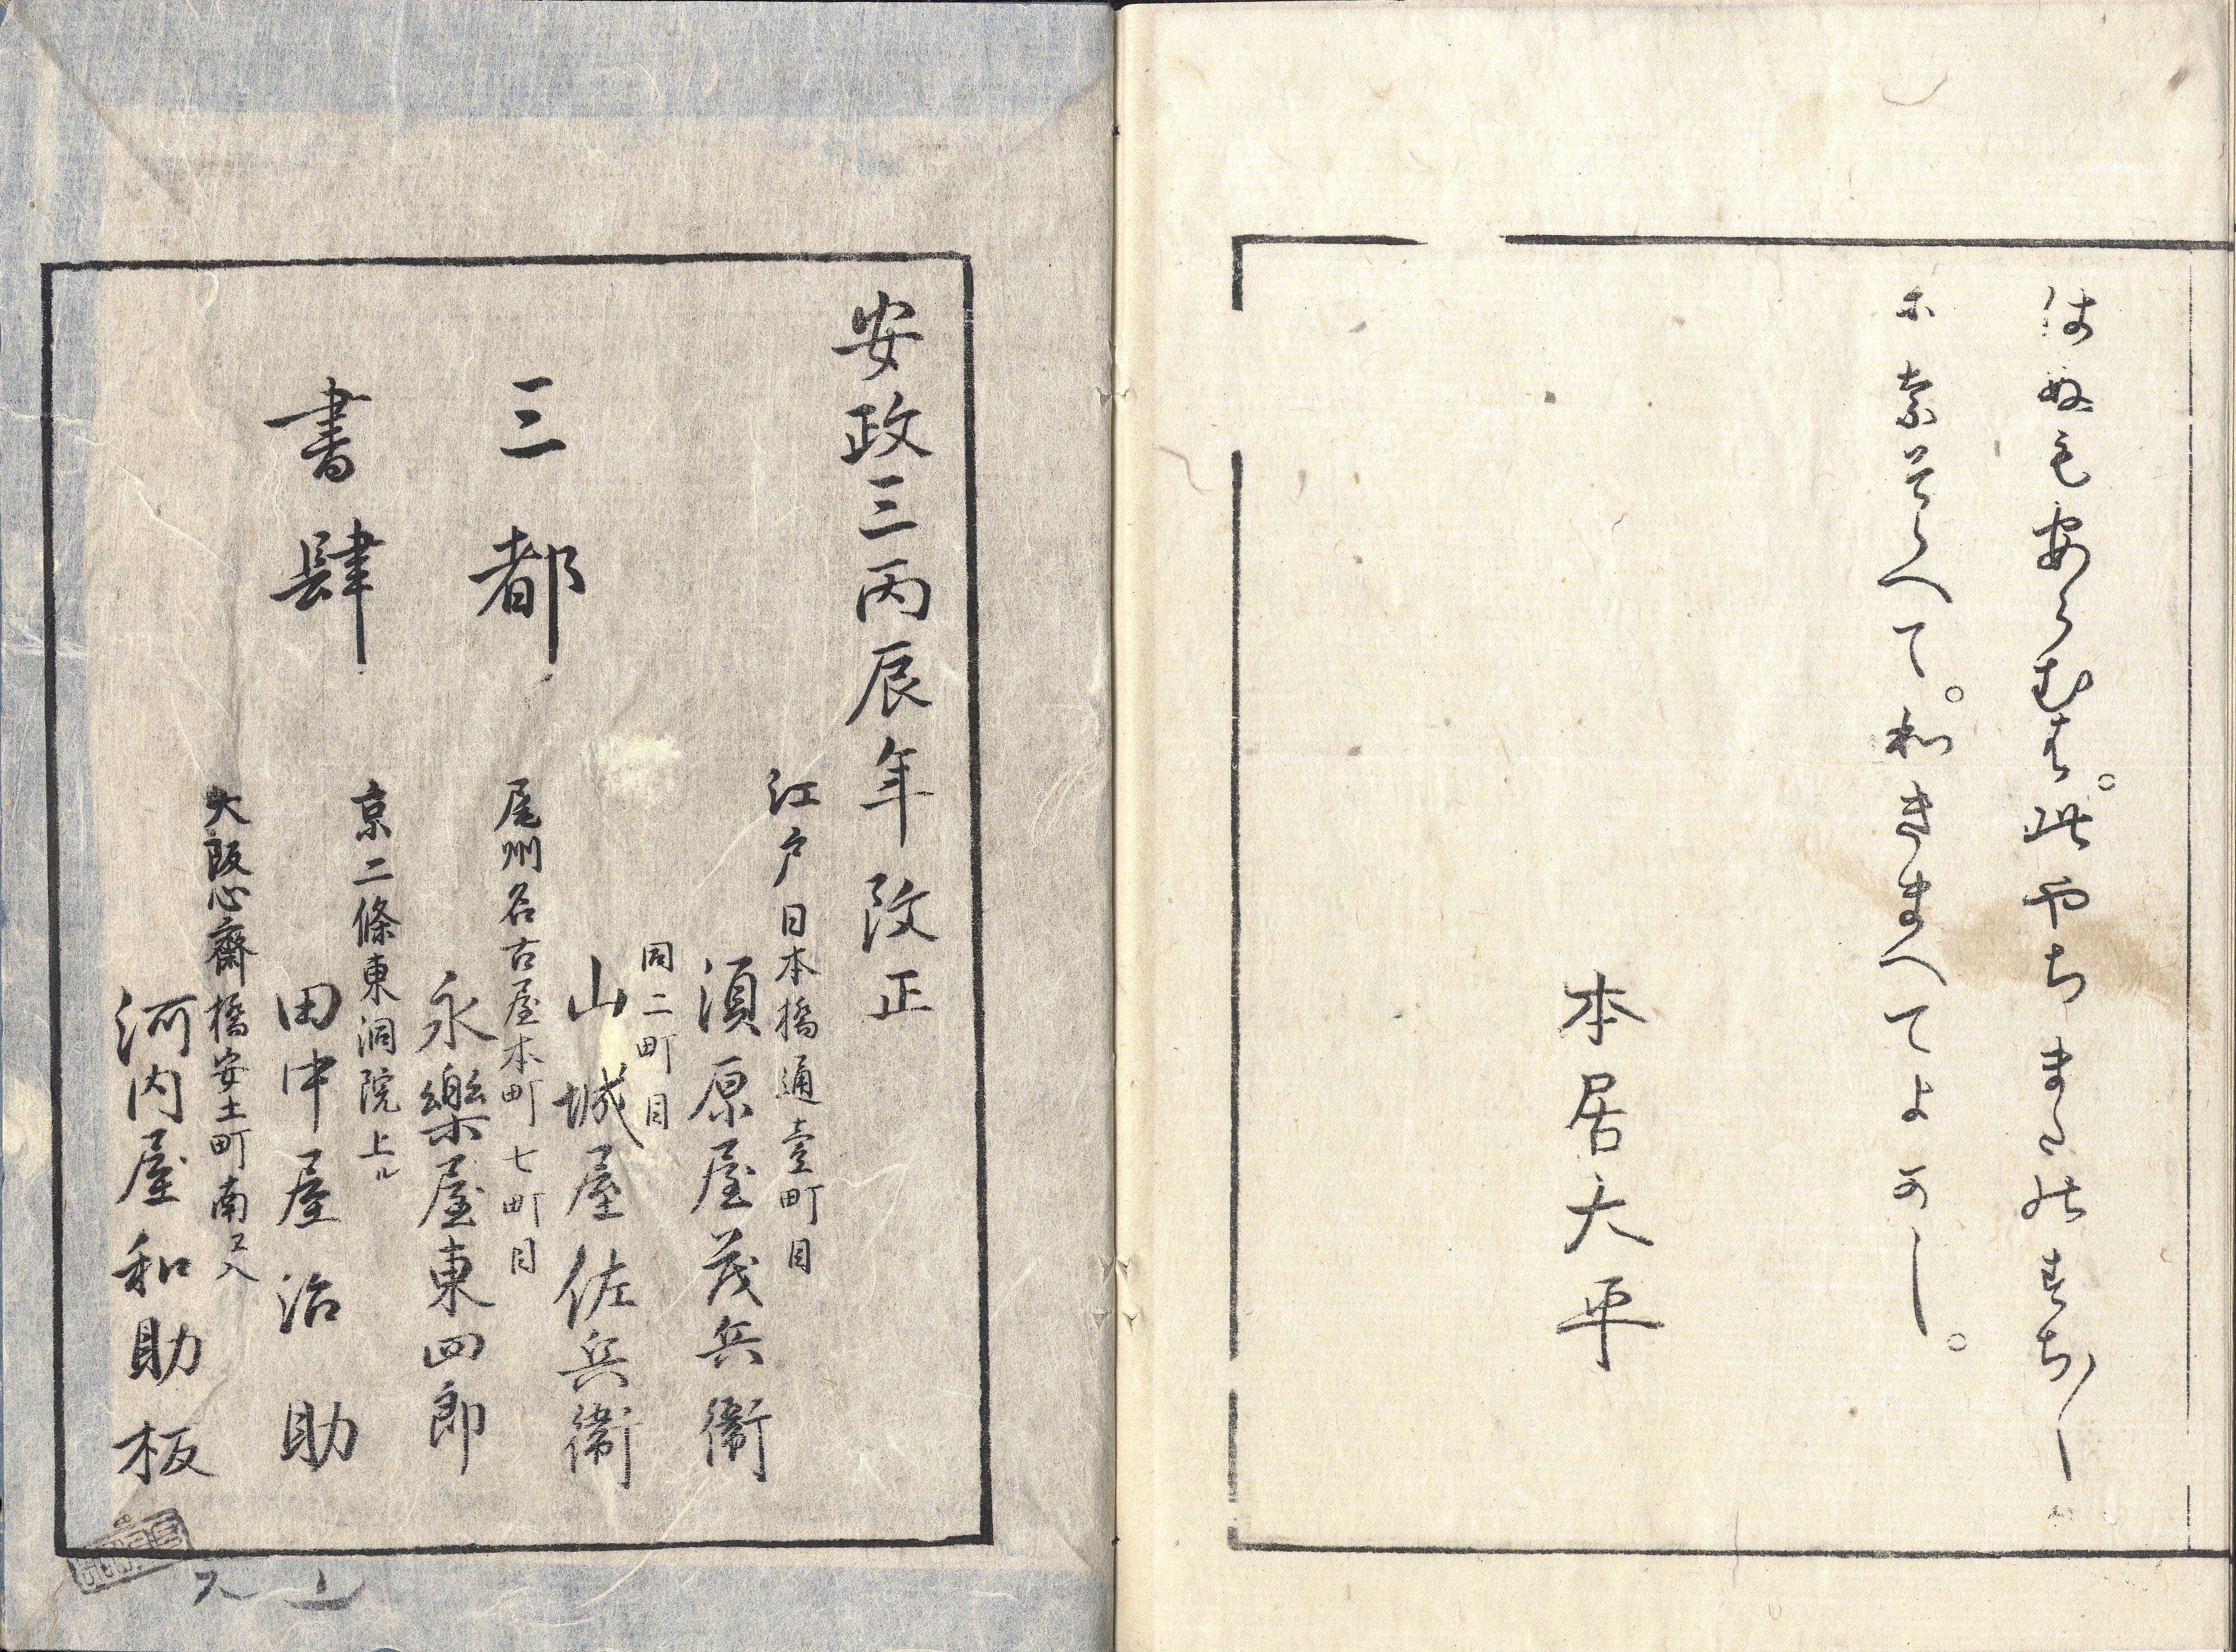 はぬも安らむは。此やちまたのまちしも
になそらへて。わきまへてよかし。
本居大平
安政三丙辰年改正
三都
書肆
江戸日本橋通壹町目
須原屋茂兵衞
同二町目
山城屋佐兵衞
尾州名古屋本町七町目
永樂屋東四郎
京二條東洞院上ル
田中屋治助
大阪心齋橋安土町南ヱ入
河内屋和助板